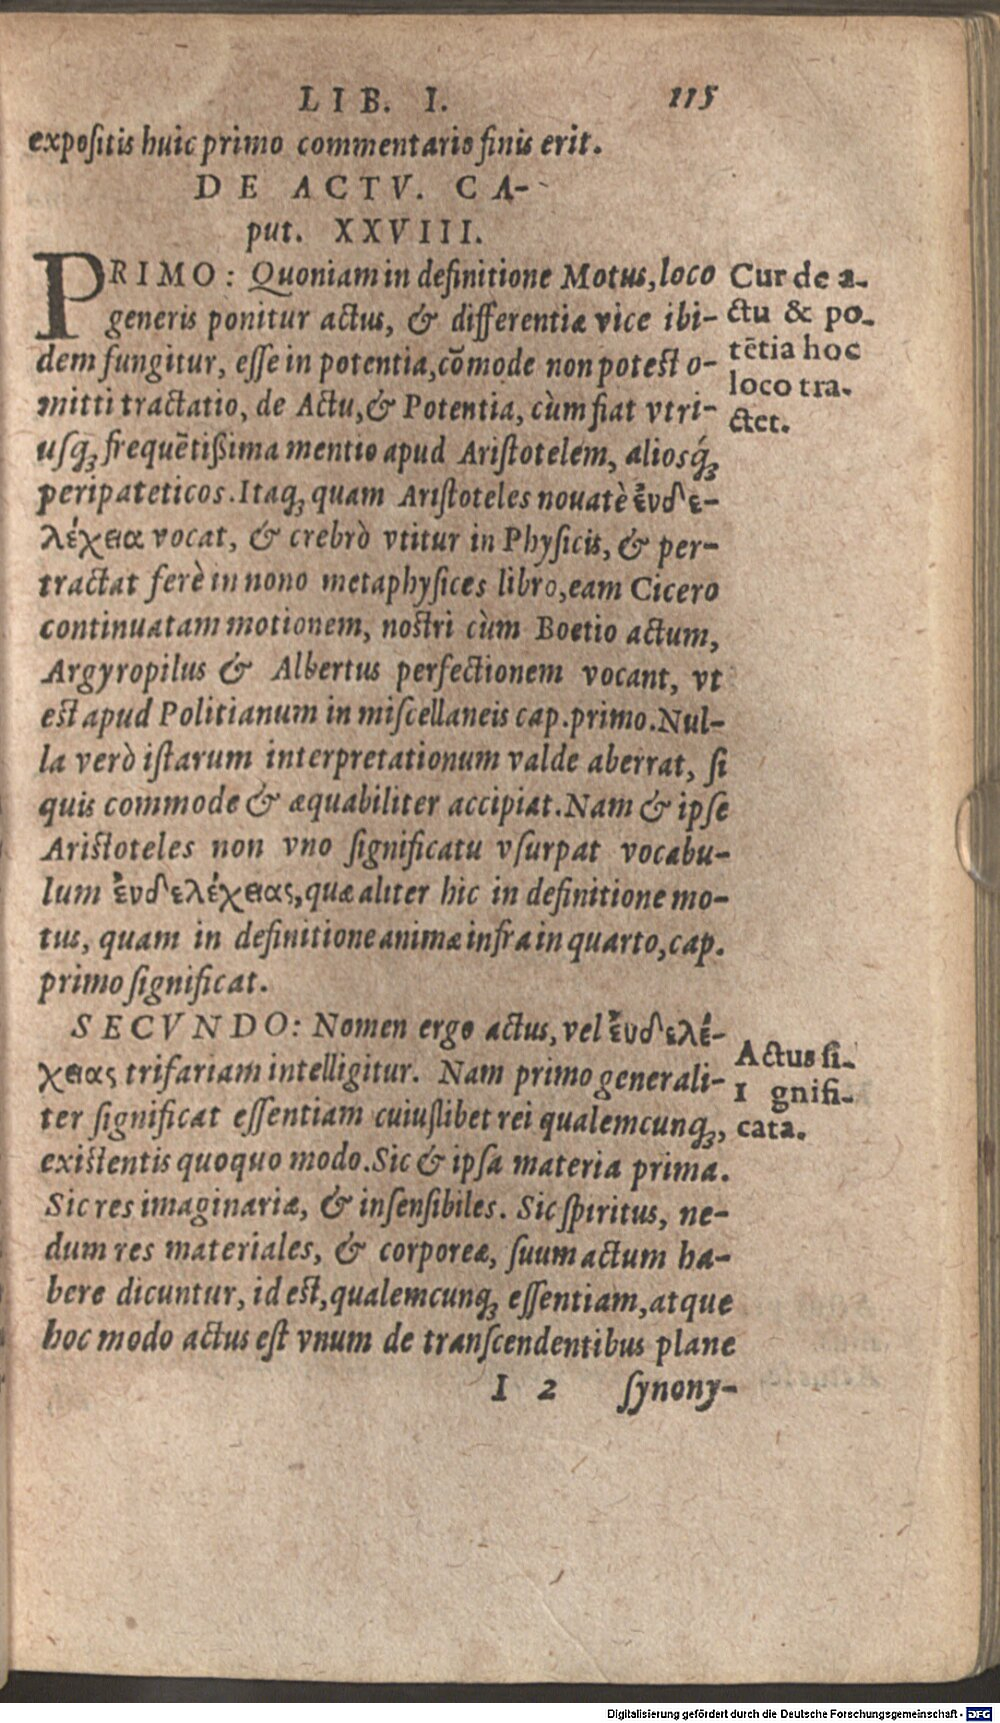 LIB. I. 115
expositis huic primo commentario finis erit.
DE ACTV. CA-
put. XXVIII.
PRIMO: Quoniam in definitione Motus, loco
generis ponitur actus, & differentiæ vice ibi-
dem fungitur, esse in potentia, cõmode non potest o-
mitti tractatio, de Actu, & Potentia, cùm fiat vtri-
usq́; frequẽtißima mentio apud Aristotelem, aliosq́;
peripateticos. Itaq; quam Aristoteles nouatè ἐνδε-
λέχεια vocat, & crebrò vtitur in Physicis, & per-
tractat ferè in nono metaphysices libro, eam Cicero
continuatam motionem, nostri cùm Boetio actum,
Argyropilus & Albertus perfectionem vocant, vt
est apud Politianum in miscellaneis cap. primo. Nul-
la verò istarum interpretationum valde aberrat, si
quis commode & æquabiliter accipiat. Nam & ipse
Aristoteles non vno significatu vsurpat vocabu-
lum ἐνδελέχειας, quæ aliter hic in definitione mo-
tus, quam in definitione animæ infra in quarto, cap.
primo significat.
SECVNDO: Nomen ergo actus, vel ἐνδελέ-
χειας trifariam intelligitur. Nam primo generali-
ter significat essentiam cuiuslibet rei qualemcunq;,
existentis quoquo modo. Sic & ipsa materia prima.
Sic res imaginariæ, & insensibiles. Sic spiritus, ne-
dum res materiales, & corporeæ, suum actum ha-
bere dicuntur, id est, qualemcunq; essentiam, atque
hoc modo actus est vnum de transcendentibus plane
I 2 synony-
Cur de a-
ctu & po-
tẽtia hoc
loco tra-
ctet.
Actus si-
1 gnifi-
cata.
Digitalisierung gefördert durch die Deutsche Forschungsgemeinschaft - DFG